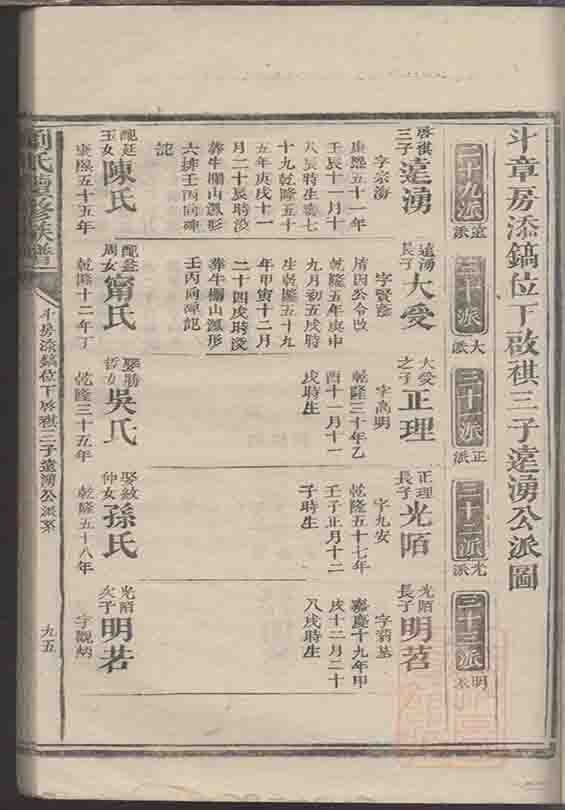 斗章房添鎬位下啟祺三子遠湧公派圖
二十九派 遠派
三十派 大派
三十一派 正派
三十二派 光派
三十三派 明派
啓祺三子 遠湧
字宗海
康熙五十一年
壬辰十一月十
八辰時生
十九乾隆五十
五年庚戌十一
月二十辰時沒
葬牛欄山瀛形
六排壬丙向碑
記
遠湧長子 大受
字賢
乾隆五年庚申
九月初五戌時
生乾隆五十九
年甲寅十二月
二十四戌時沒
葬牛欄山瀛形
壬丙向碑記
大受之子 正理
字高明
乾隆三十年乙
酉十一月十一
戌時生
正理長子 光陌
字九安
乾隆五十七年
壬子正月十二
子時生
光陌長子 明茗
字菊
嘉慶十九年甲
戌十二月二十
八戌時生
配廷玉女 陳氏
康熙五十五年
配盛周女 甯氏
乾隆十二年丁
娶勝哲女 吳氏
乾隆三十五年
娶紋仲女 孫氏
乾隆五十八年
光陌次子 明若
字觀炳
劉氏續修族譜
斗房添鎬位下啓祺三子遠湧公派系
九五